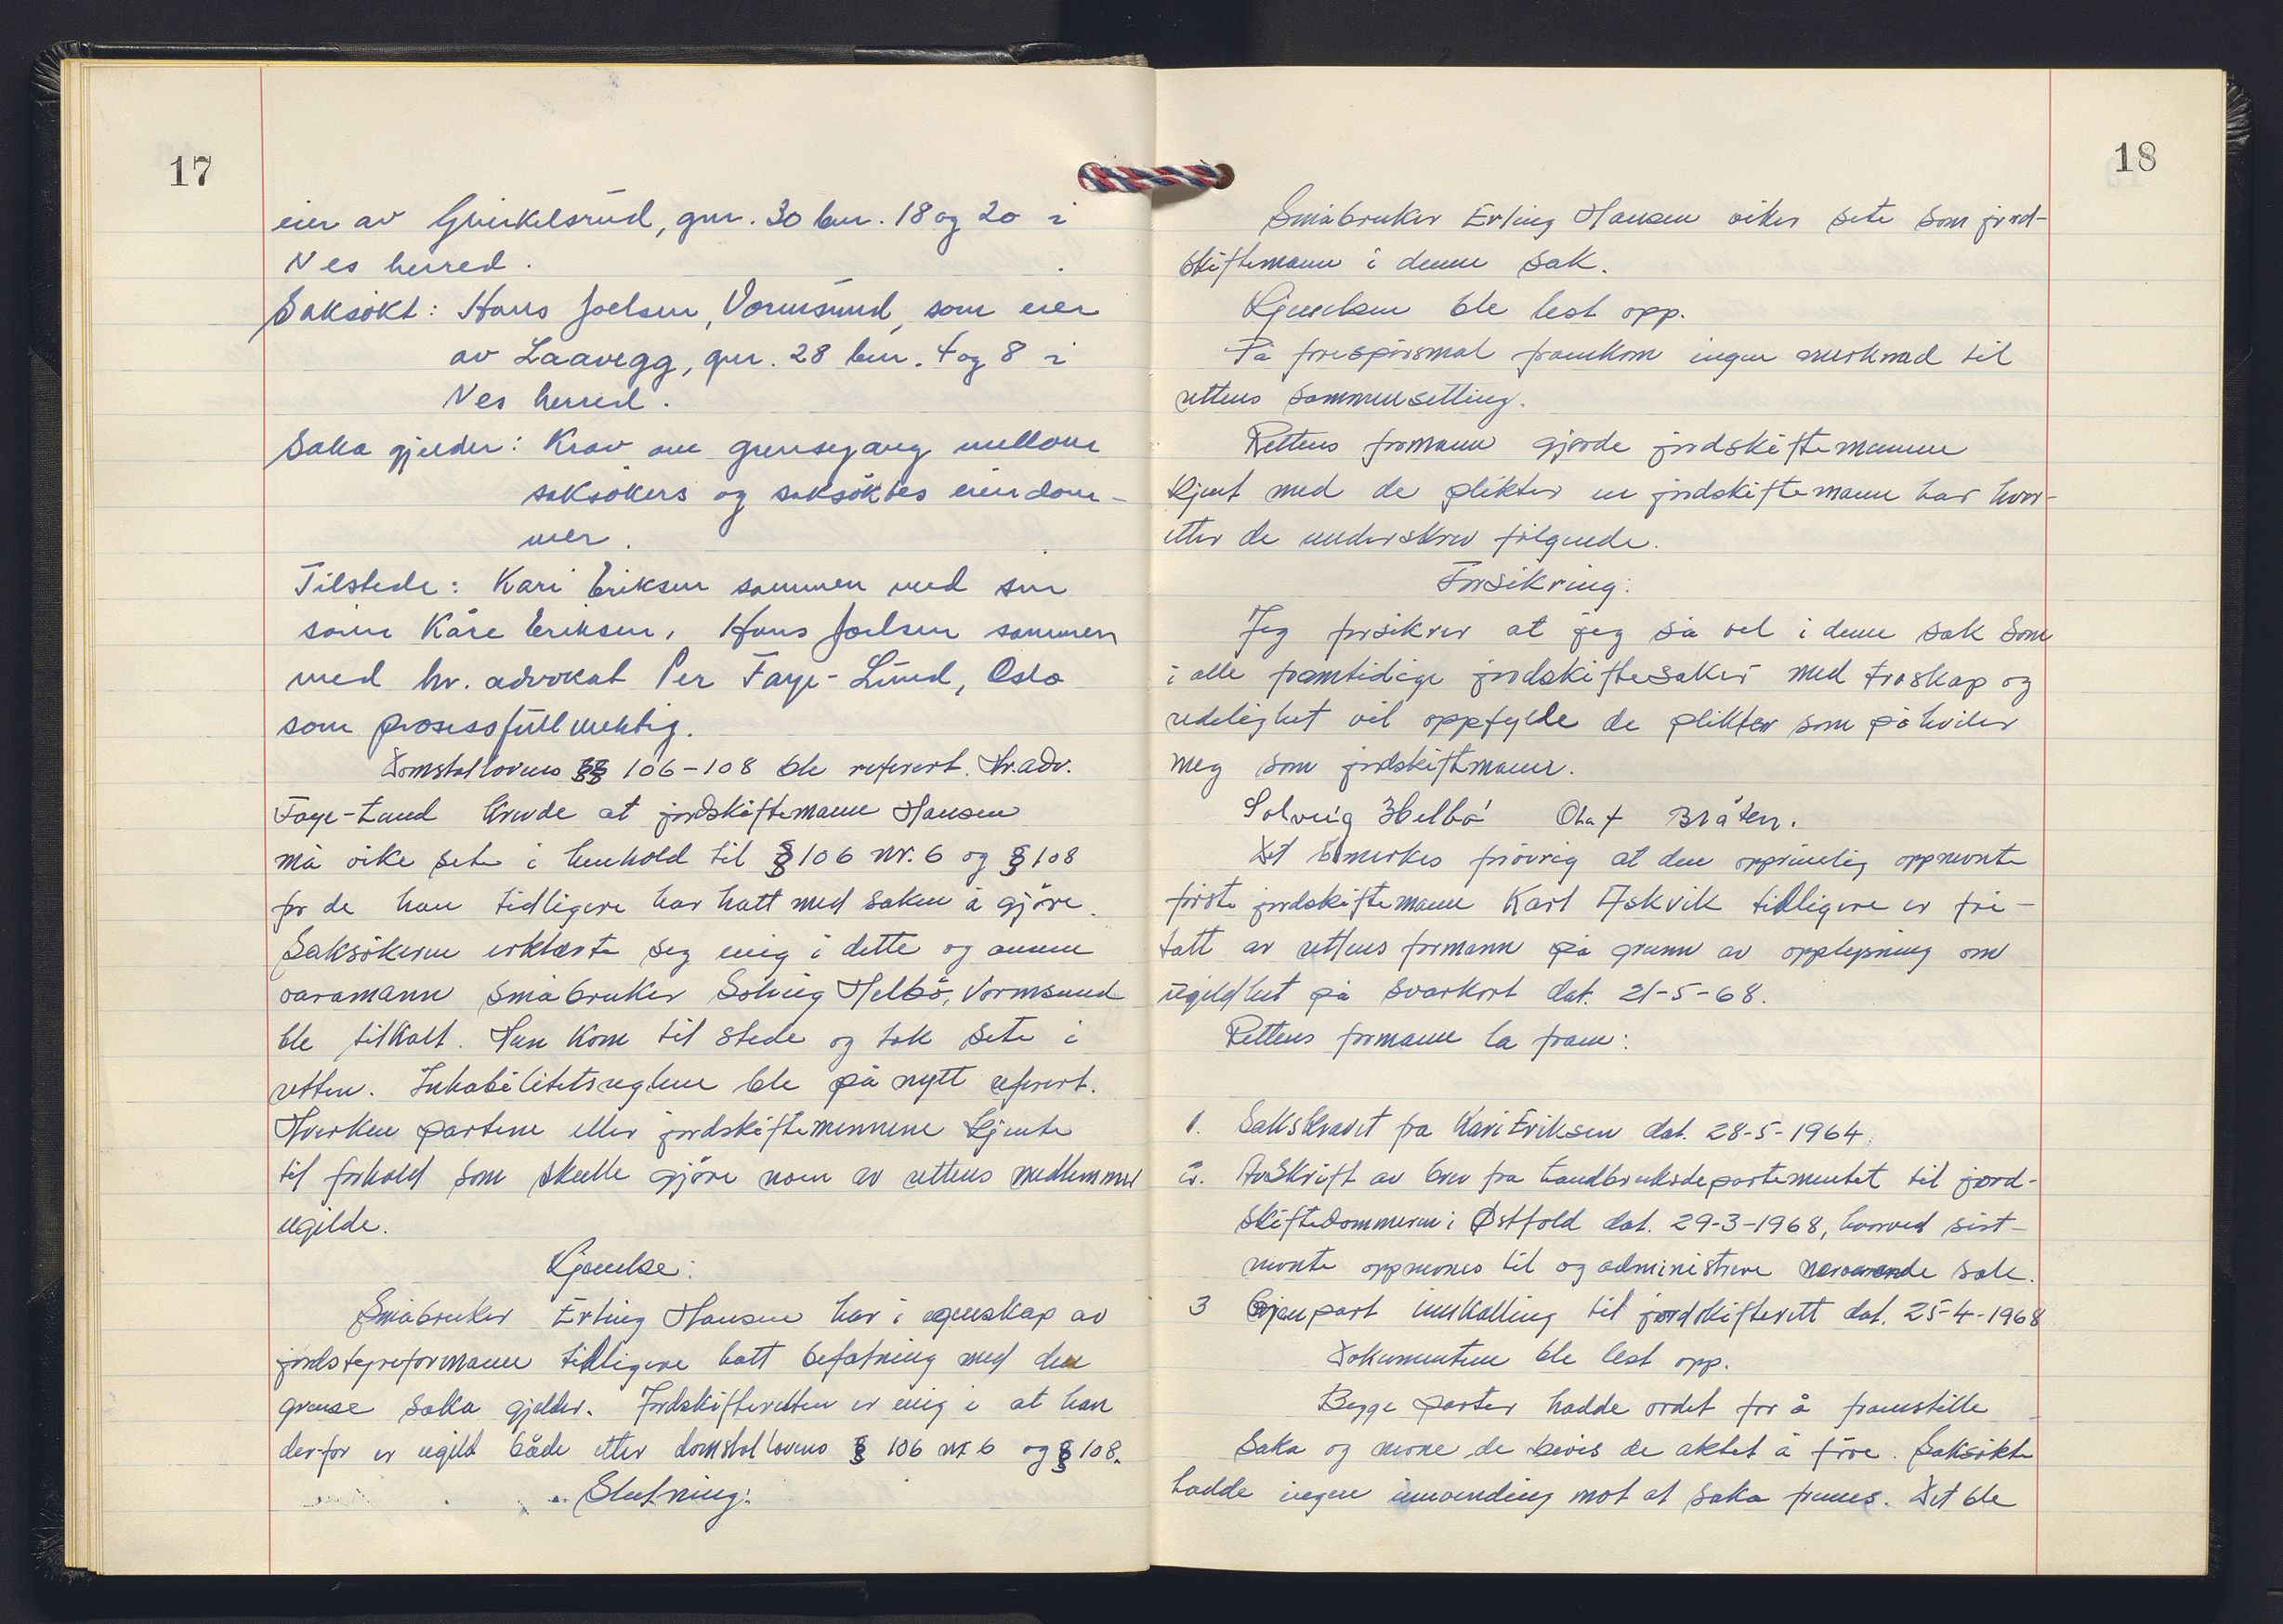 17
eier av Gunkelsrud, gnr. 30 bnr. 18 og 20 i
Nes herred.
Saksøkt: Hans Joelsen, Vormsund, som eier
av Laavegg, gnr. 28 bnr. 4 og 8 i
Nes herred.
Saka gjelder: Krav om grensegang mellom
saksøkers og saksøktes eiendom-
mer.
Tilstede: Kari Eriksen sammen med sin
sønn Kåre Eriksen, Hans Joelsen sammen
med hr. advokat Per Faye-Lund, Oslo
som prosessfullmektig.
Domstollovens §§ 106-108 ble referert. Hr. adv.
Faye-Lund krevde at jordskiftemann Hansen
må vike sete i henhold til § 106 nr. 6 og § 108
for de han tidligere har hatt med saken å gjøre.
Saksøkeren erklærte seg enig i dette og annen
varamann småbruker Solveig Helbø, Vormsund
ble tilkalt. Hun kom til stede og tok sete i
retten. Inhabilitetsreglene ble på nytt referert.
Hverken partene eller jordskiftemennene kjente
til forhold som skulle gjøre noen av rettens medlemmer
ugilde.
Kjennelse:
Småbruker Erling Hansen har i egenskap av
jordstyreformann tidligere hatt befatning med den
grense saka gjelder. Jordskifteretten er enig i at han
derfor er ugild både etter domstollovens § 106 nr 6 og § 108.
Slutning:
18
Småbruker Erling Hansen viker sete som jord-
skiftemann i denne sak.
Kjennelsen ble lest opp.
På forespørsmal framkom ingen merknad til
rettens sammensetting.
Rettens formann gjorde jordskiftemennene
kjent med de plikter en jordskiftemann har hvor-
etter de underskrev følgende.
Forsikring:
Jeg forsikrer at jeg så vel i denne sak som
i alle framtidige jordskiftesaker med troskap og
redelighet vil oppfylde de plikter som påhviler
meg som jordskiftmann.
Solveig Helbø Olaf Bråten.
Det bemerkes forøvrig at den opprinnelig oppnevnte
første jordskiftemann Karl Askvik tidligere er fri-
tatt av rettens formann på grunn av opplysning om
ugildhet på svarkort dat. 21-5-68.
Rettens formann la fram:
1. Sakskravet fra Kari Eriksen dat. 28-5-1964.
2. Avskrift av brev fra Landbruksdepartementet til jord-
skiftedommeren i Østfold dat. 29-3-1968, hvorved sist-
nevnte oppnevnes til og administrere nærværende sak.
3 Gjenpart innkalling til jordskifterett dat. 25-4-1968
Dokumentene ble lest opp.
Begge parter hadde ordet for å framstille
saka og nevne de bevis de aktet å føre. Saksøkte
hadde ingen innvending mot at saka fremmes. Det ble